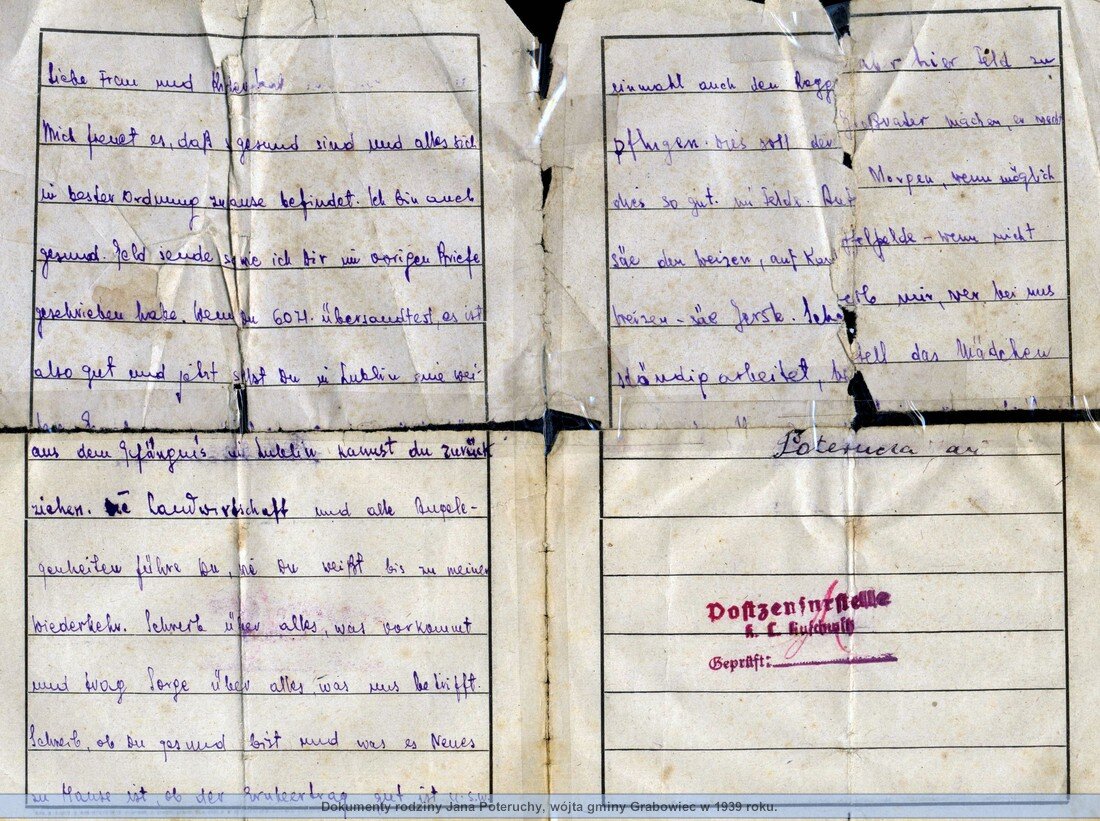 Liebe Frau und
Mich freuet es, daß gesund sind und alles sich
in bester Ordnung zuause befindet. Ich bin auch
gesund. Geld sende ich Dir im vorigen Briefe
geschrieben habe. Wenn Du 60 zł. übersandtest, es ist
also gut und jetzt Du in Lublin
aus dem Gefängnis in Lublin kannst du zurück
ziehen. Landwirtschaft und alle Angele-
genheiten führe Du, wie Du weißt bis zu meiner
Wiederkehr. Schreib über alles, was vorkommt
und trag Sorge über alles was uns betrifft.
Schreib, ob Du gesund bist und was es Neues
zu Hause ist, ob der Ernteertrag gut ist u.s.w.
einmahl auch den Rogg hier Feld zu
pflugen. dies soll der Großvater machen, er macht
dies so gut. im Felde. Morgen, wenn möglich
säe den Weizen, auf - wenn nicht
Weizen - säe Gerste. mir, wer bei uns
ständig arbeitet, das Mädchen
Postzensurstelle
K. L. Auschwitz
Geprüft:
Dokumenty rodziny Jana Poteruchy, wójta gminy Grabowiec w 1939 roku.